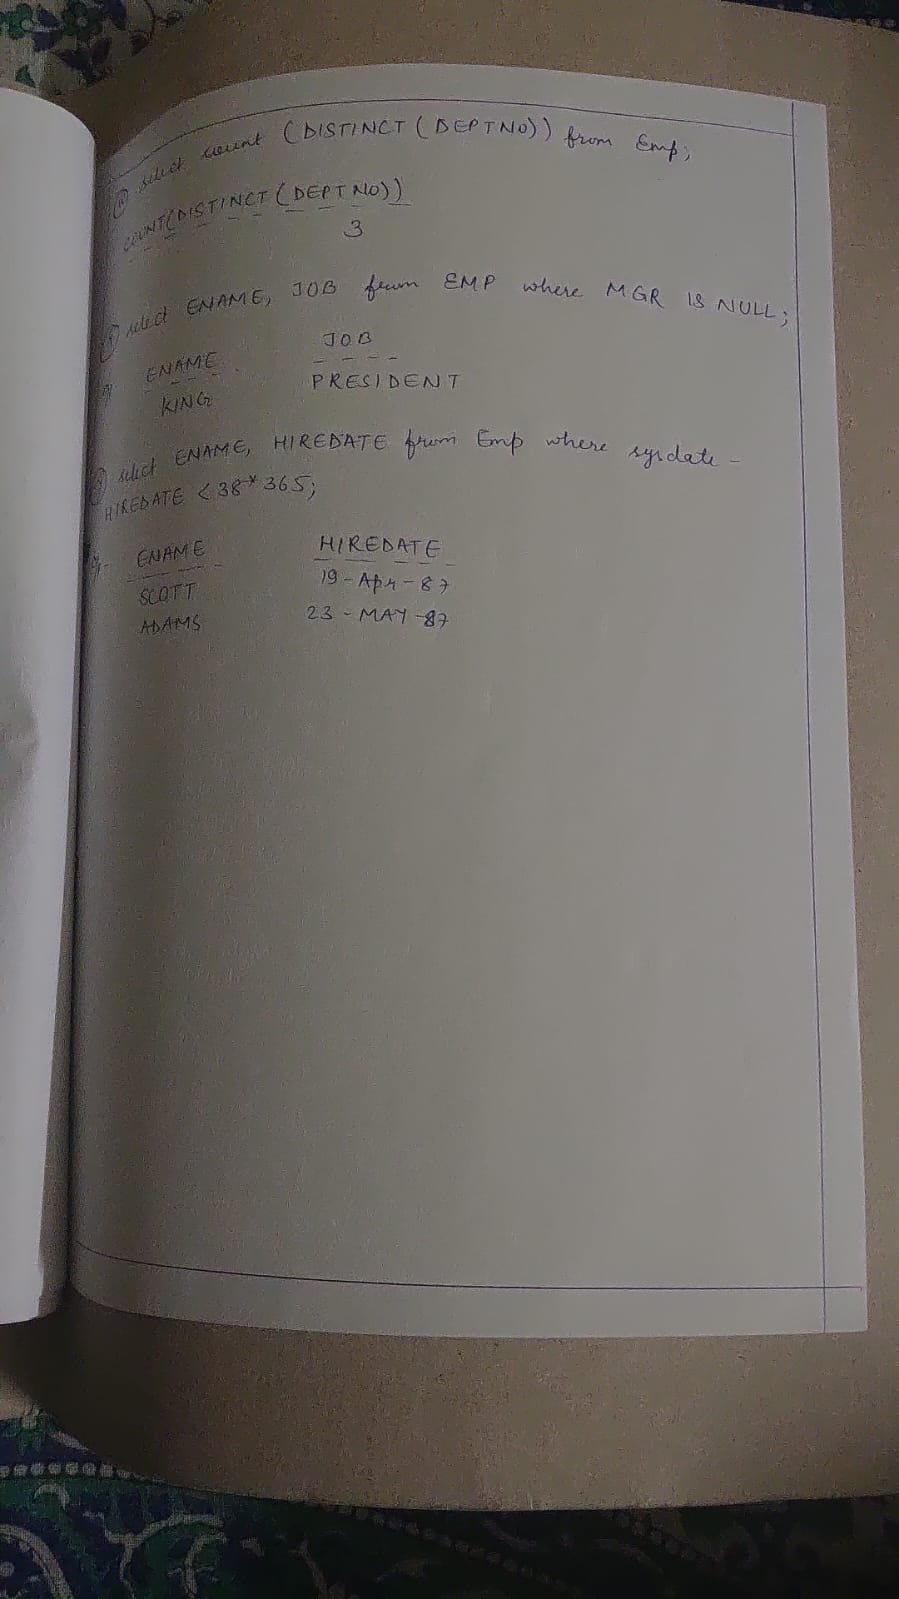 select count (DISTINCT (DEPTNO)) from Emp;
COUNT(DISTINCT (DEPT NO))
3
select ENAME, JOB from EMP where MGR IS NULL;
ENAME JOB
KING PRESIDENT
select ENAME, HIREDATE from Emp where sysdate -
HIREDATE < 38* 365;
ENAME HIREDATE
SCOTT 19 - Apr - 87
ADAMS 23 - MAY - 87